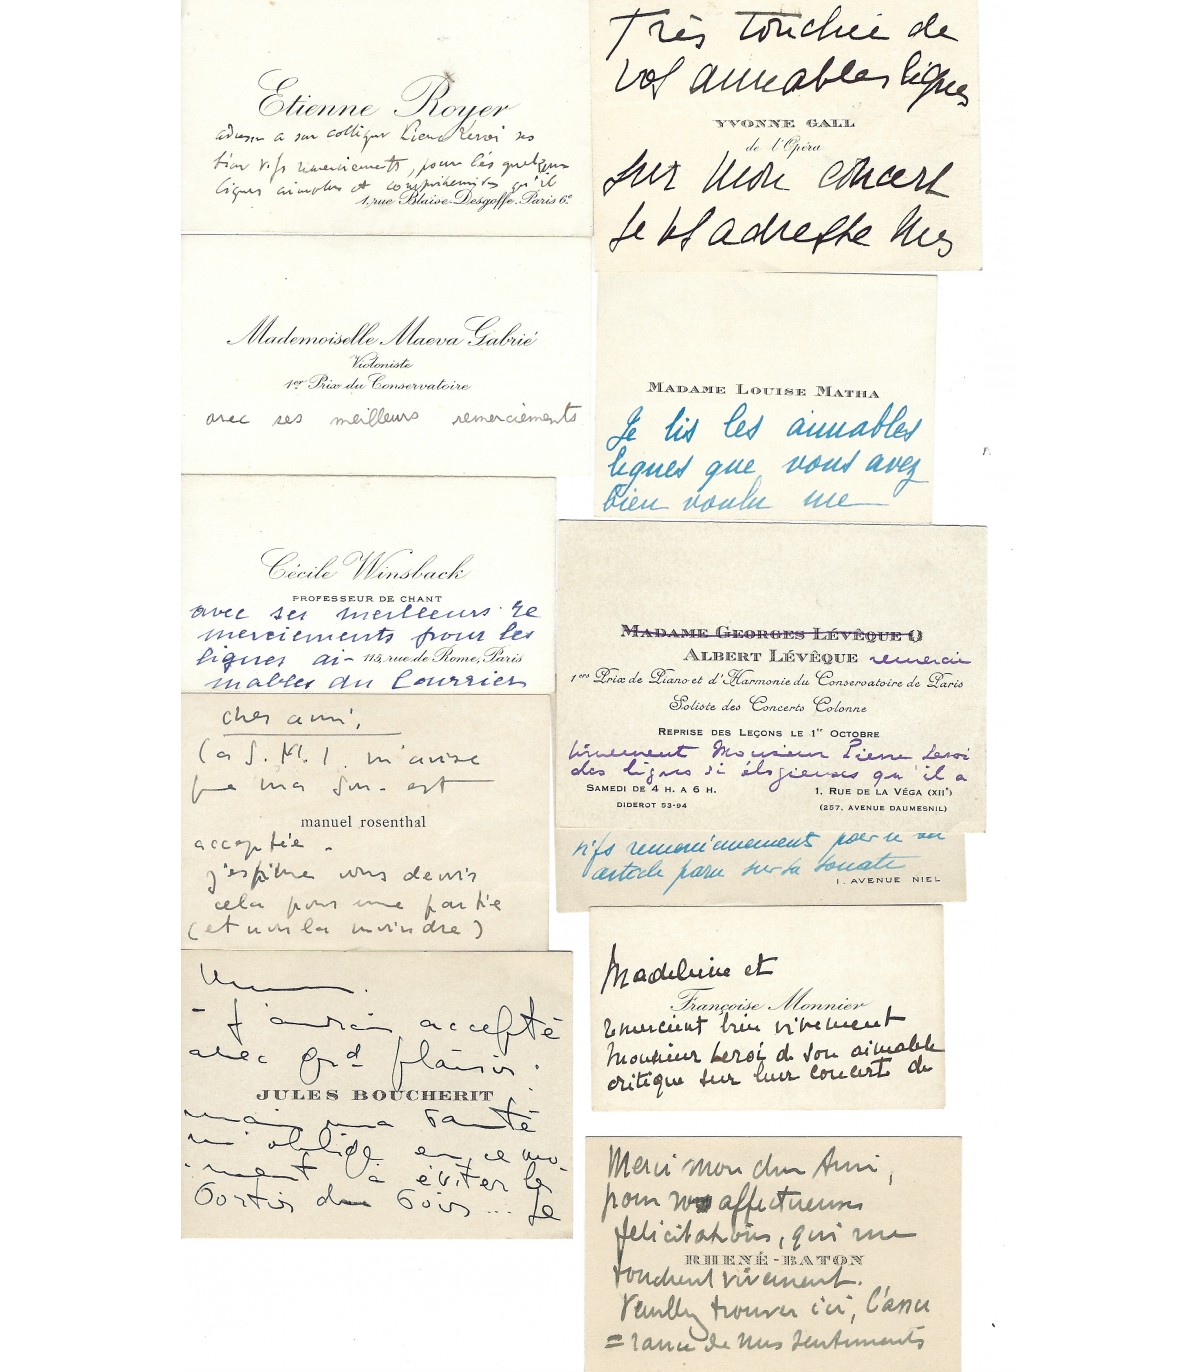 Etienne Royer
adresse a son collègue Pierre Leroi ses
bien vifs remerciements, pour les quelques
lignes aimables et compréhensives qu'il
1, rue Blaise-Desgoffe. Paris 6e
Mademoiselle Maeva Gabrié
Violoniste
1er Prix du Conservatoire
avec ses meilleurs remerciements
Cécile Winsback
PROFESSEUR DE CHANT
avec ses meilleurs re
merciements pour les
lignes ai-
115, rue de Rome, Paris
mables du Courrier
cher ami,
la S.M.I. m'avise
que ma Son- est
manuel rosenthal
acceptée.
j'estime vous devoir
cela pour une partie
(et non la moindre)
- J'aurais accepté
avec grd plaisir.
JULES BOUCHERIT
mais ma santé
m'oblige en ce mo-
-ment à éviter les
sorties du soir... Je
Très touchée de
vos aimables lignes
YVONNE GALL
de l'Opéra
sur mon concert
je vs adresse mes
MADAME LOUISE MATHA
Je lis les aimables
lignes que vous avez
bien voulu me
MADAME GEORGES LÉVÊQUE
ALBERT LÉVÊQUE remercie
1ers Prix de Piano et d'Harmonie du Conservatoire de Paris
Soliste des Concerts Colonne
REPRISE DES LEÇONS LE 1er OCTOBRE
vivement Monsieur Pierre Leroi
des lignes si élogieuses qu'il a
SAMEDI DE 4 H. A 6 H.
DIDEROT 53-94
1, RUE DE LA VÉGA (XIIe)
(257, AVENUE DAUMESNIL)
vifs remerciements pour
article paru sur sa sonate
1, AVENUE NIEL
Madeleine et
Françoise Monnier
remercient bien vivement
Monsieur Leroi de son aimable
critique sur leur concert de
Merci mon cher Ami,
pour vos affectueuses
félicitations, qui me
RHENÉ-BATON
touchent vivement.
Veuillez trouver ici, l'assu
=rance de mes sentiments